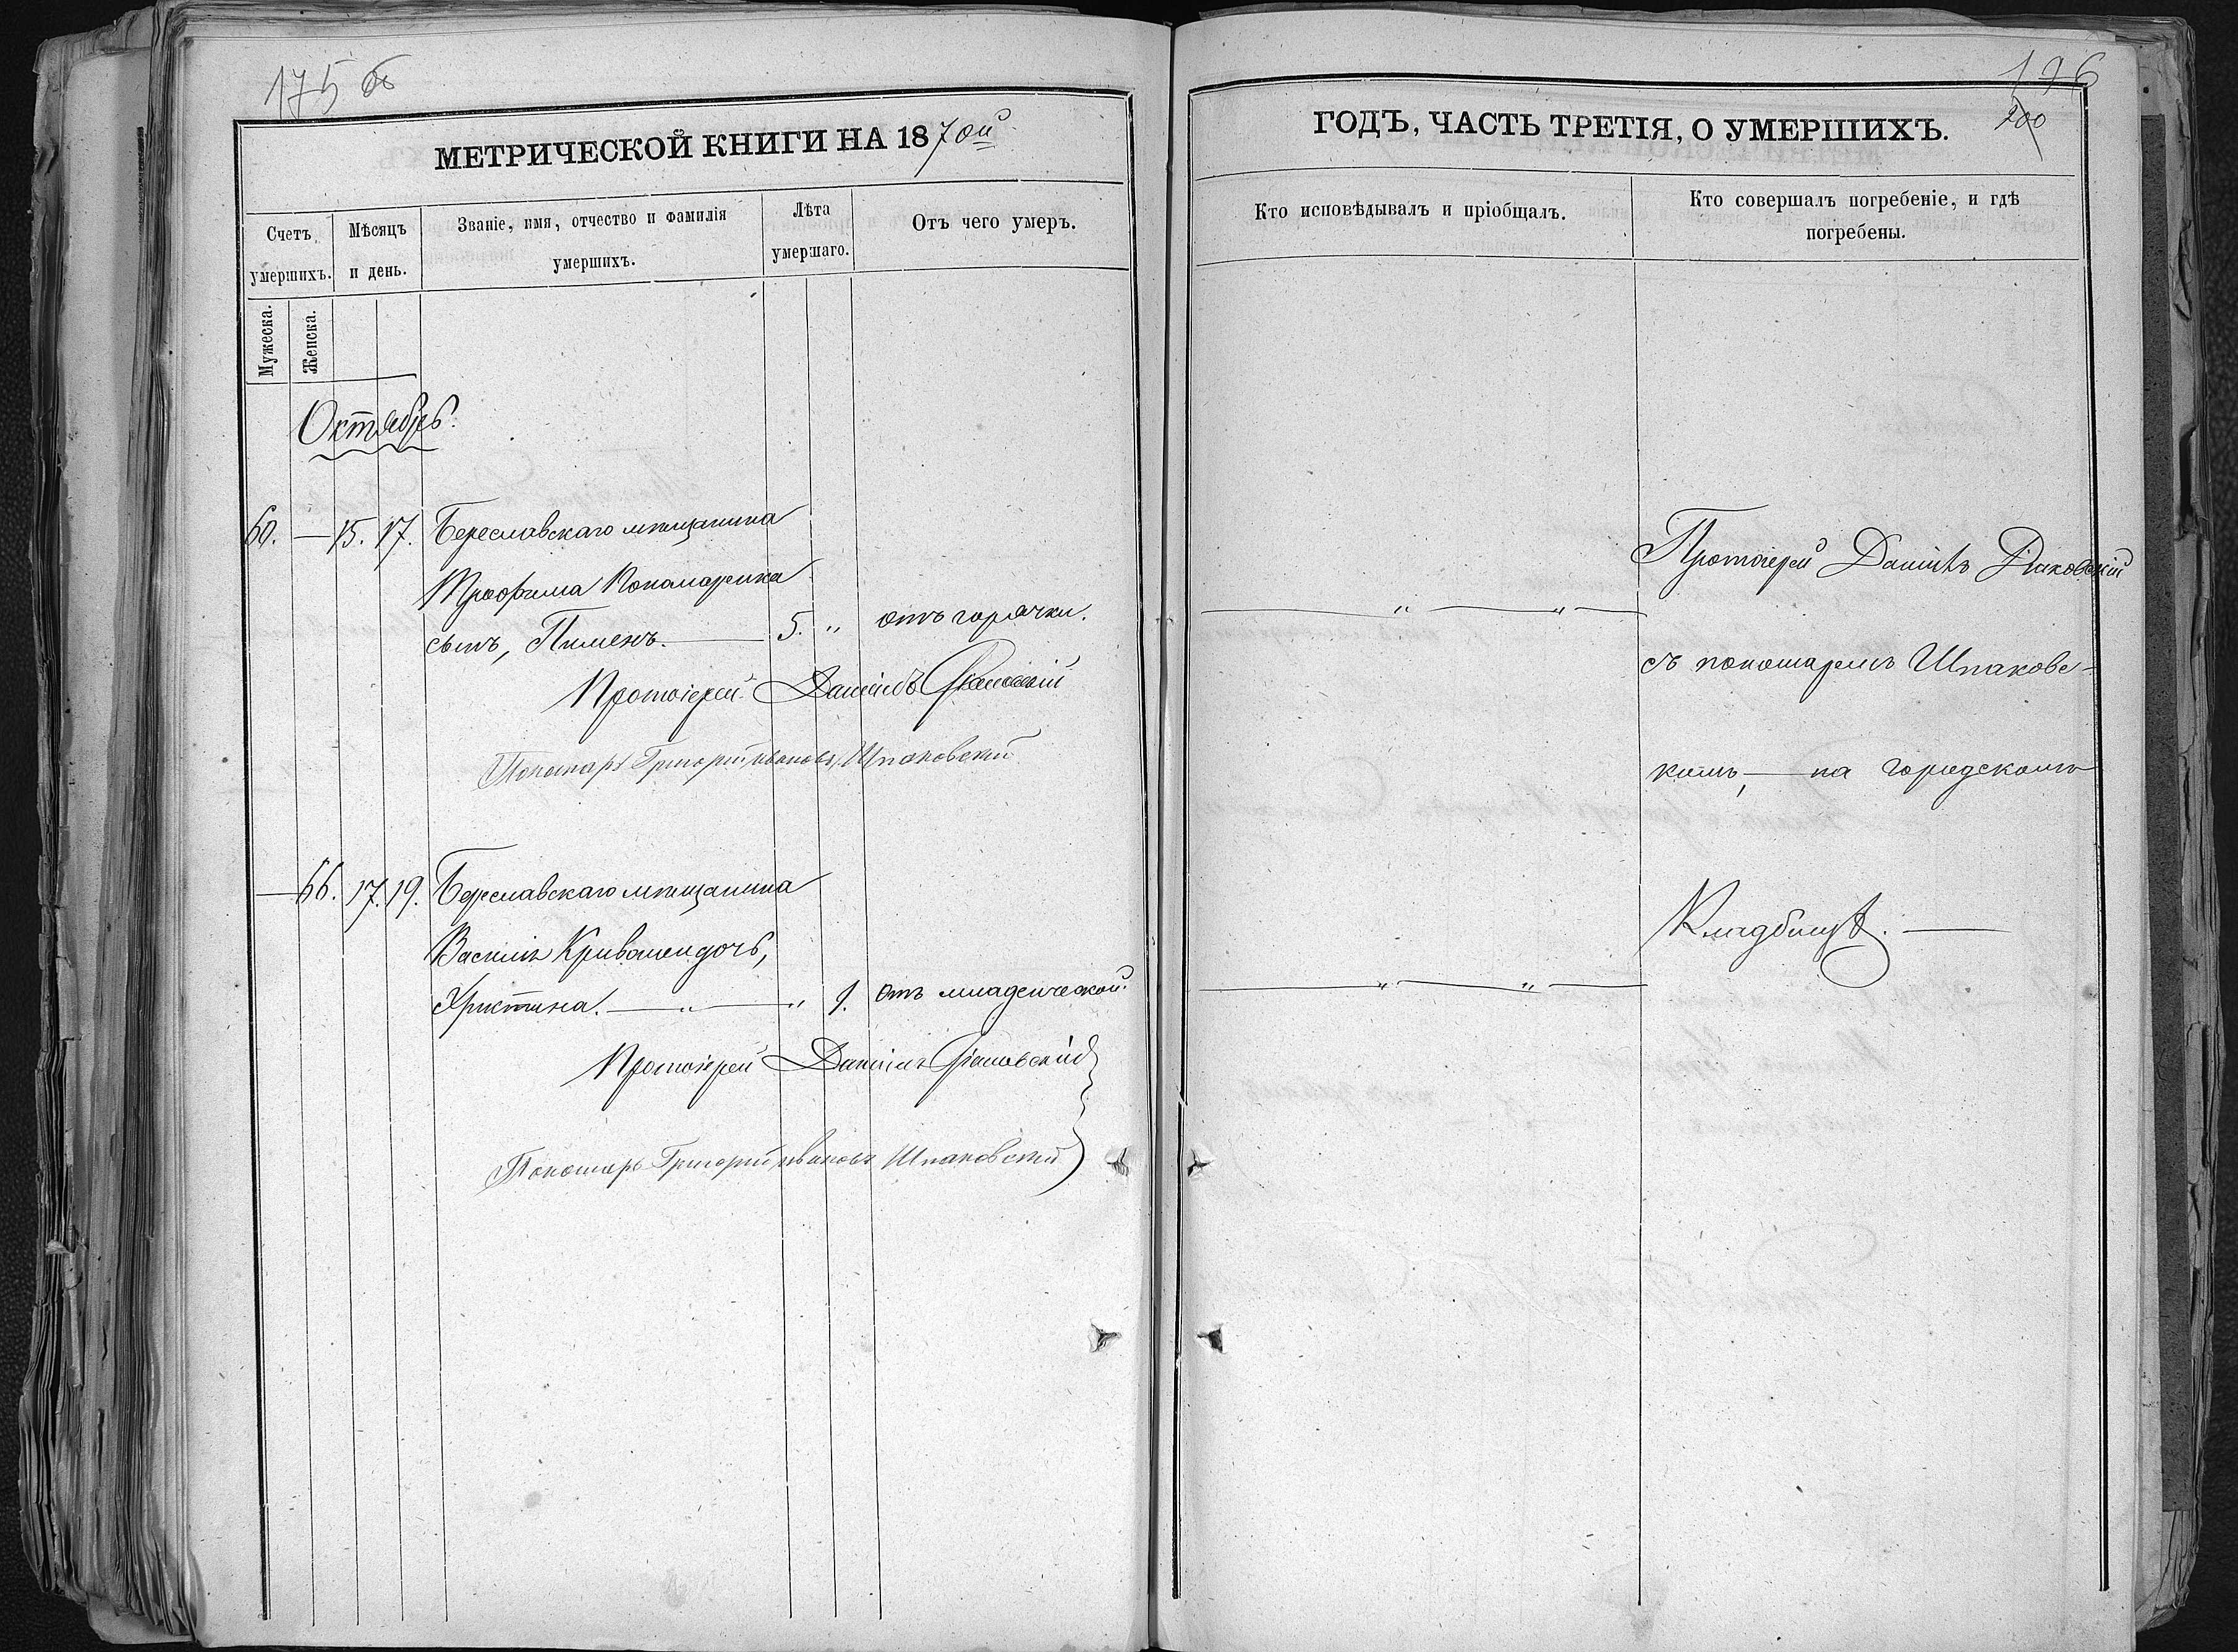 175 об
МЕТРИЧЕСКОЙ КНИГИ НА 1870ый
Счетъ умершихъ.
Мужеска.
Женска.
Мѣсяцъ и день.
Званіе, имя, отчество и фамилія умершихъ.
Лѣта умершаго.
Отъ чего умеръ.
Октябрь.
60. — 15. 17. Береславскаго мѣщанина
Трофима Пономаренка
сынъ, Пименъ. — 5. " отъ горячки.
Протоіерей Даніилъ
Пономарь Григорій Ивановъ Шпаковскій
— 66. 17. 19. Береславскаго мѣщанина
Василія дочь,
Христина. — " — " 1. Отъ младенческой.
Протоіерей Даніилъ
Пономарь Григорій Ивановъ Шпаковскій
196
200
ГОДЪ, ЧАСТЬ ТРЕТІЯ, О УМЕРШИХЪ.
Кто исповѣдывалъ и пріобщалъ.
Кто совершалъ погребеніе, и гдѣ
погребены.
Протоіерей Даніилъ
— " — " —
съ пономаремъ Шпаковс-
кимъ, — на городскомъ
Кладбищѣ. —
— " — " —